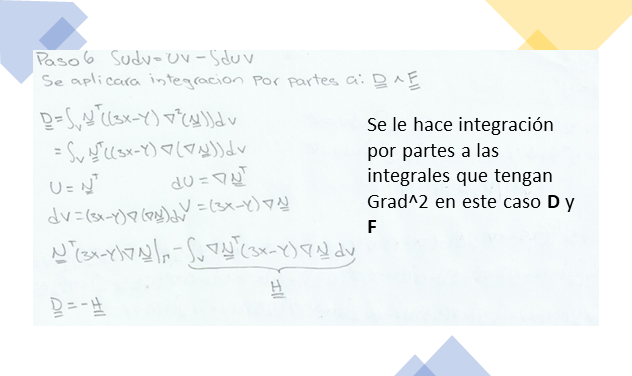 Paso 6 Sudv = UV - Sduv
Se aplicara integracion Por Partes a: D ^ F
D = ∫v N^T((3x-Y) ∇²(N))dv
= ∫v N^T((3x-Y) ∇(∇N))dv
U = N^T dU = ∇N^T
dv = (3x-Y)∇(∇N)dv V = (3x-Y)∇N
N^T(3x-Y)∇N|Γ - ∫v ∇N^T(3x-Y)∇N dv
H
D = -H
Se le hace integración
por partes a las
integrales que tengan
Grad^2 en este caso D y
F